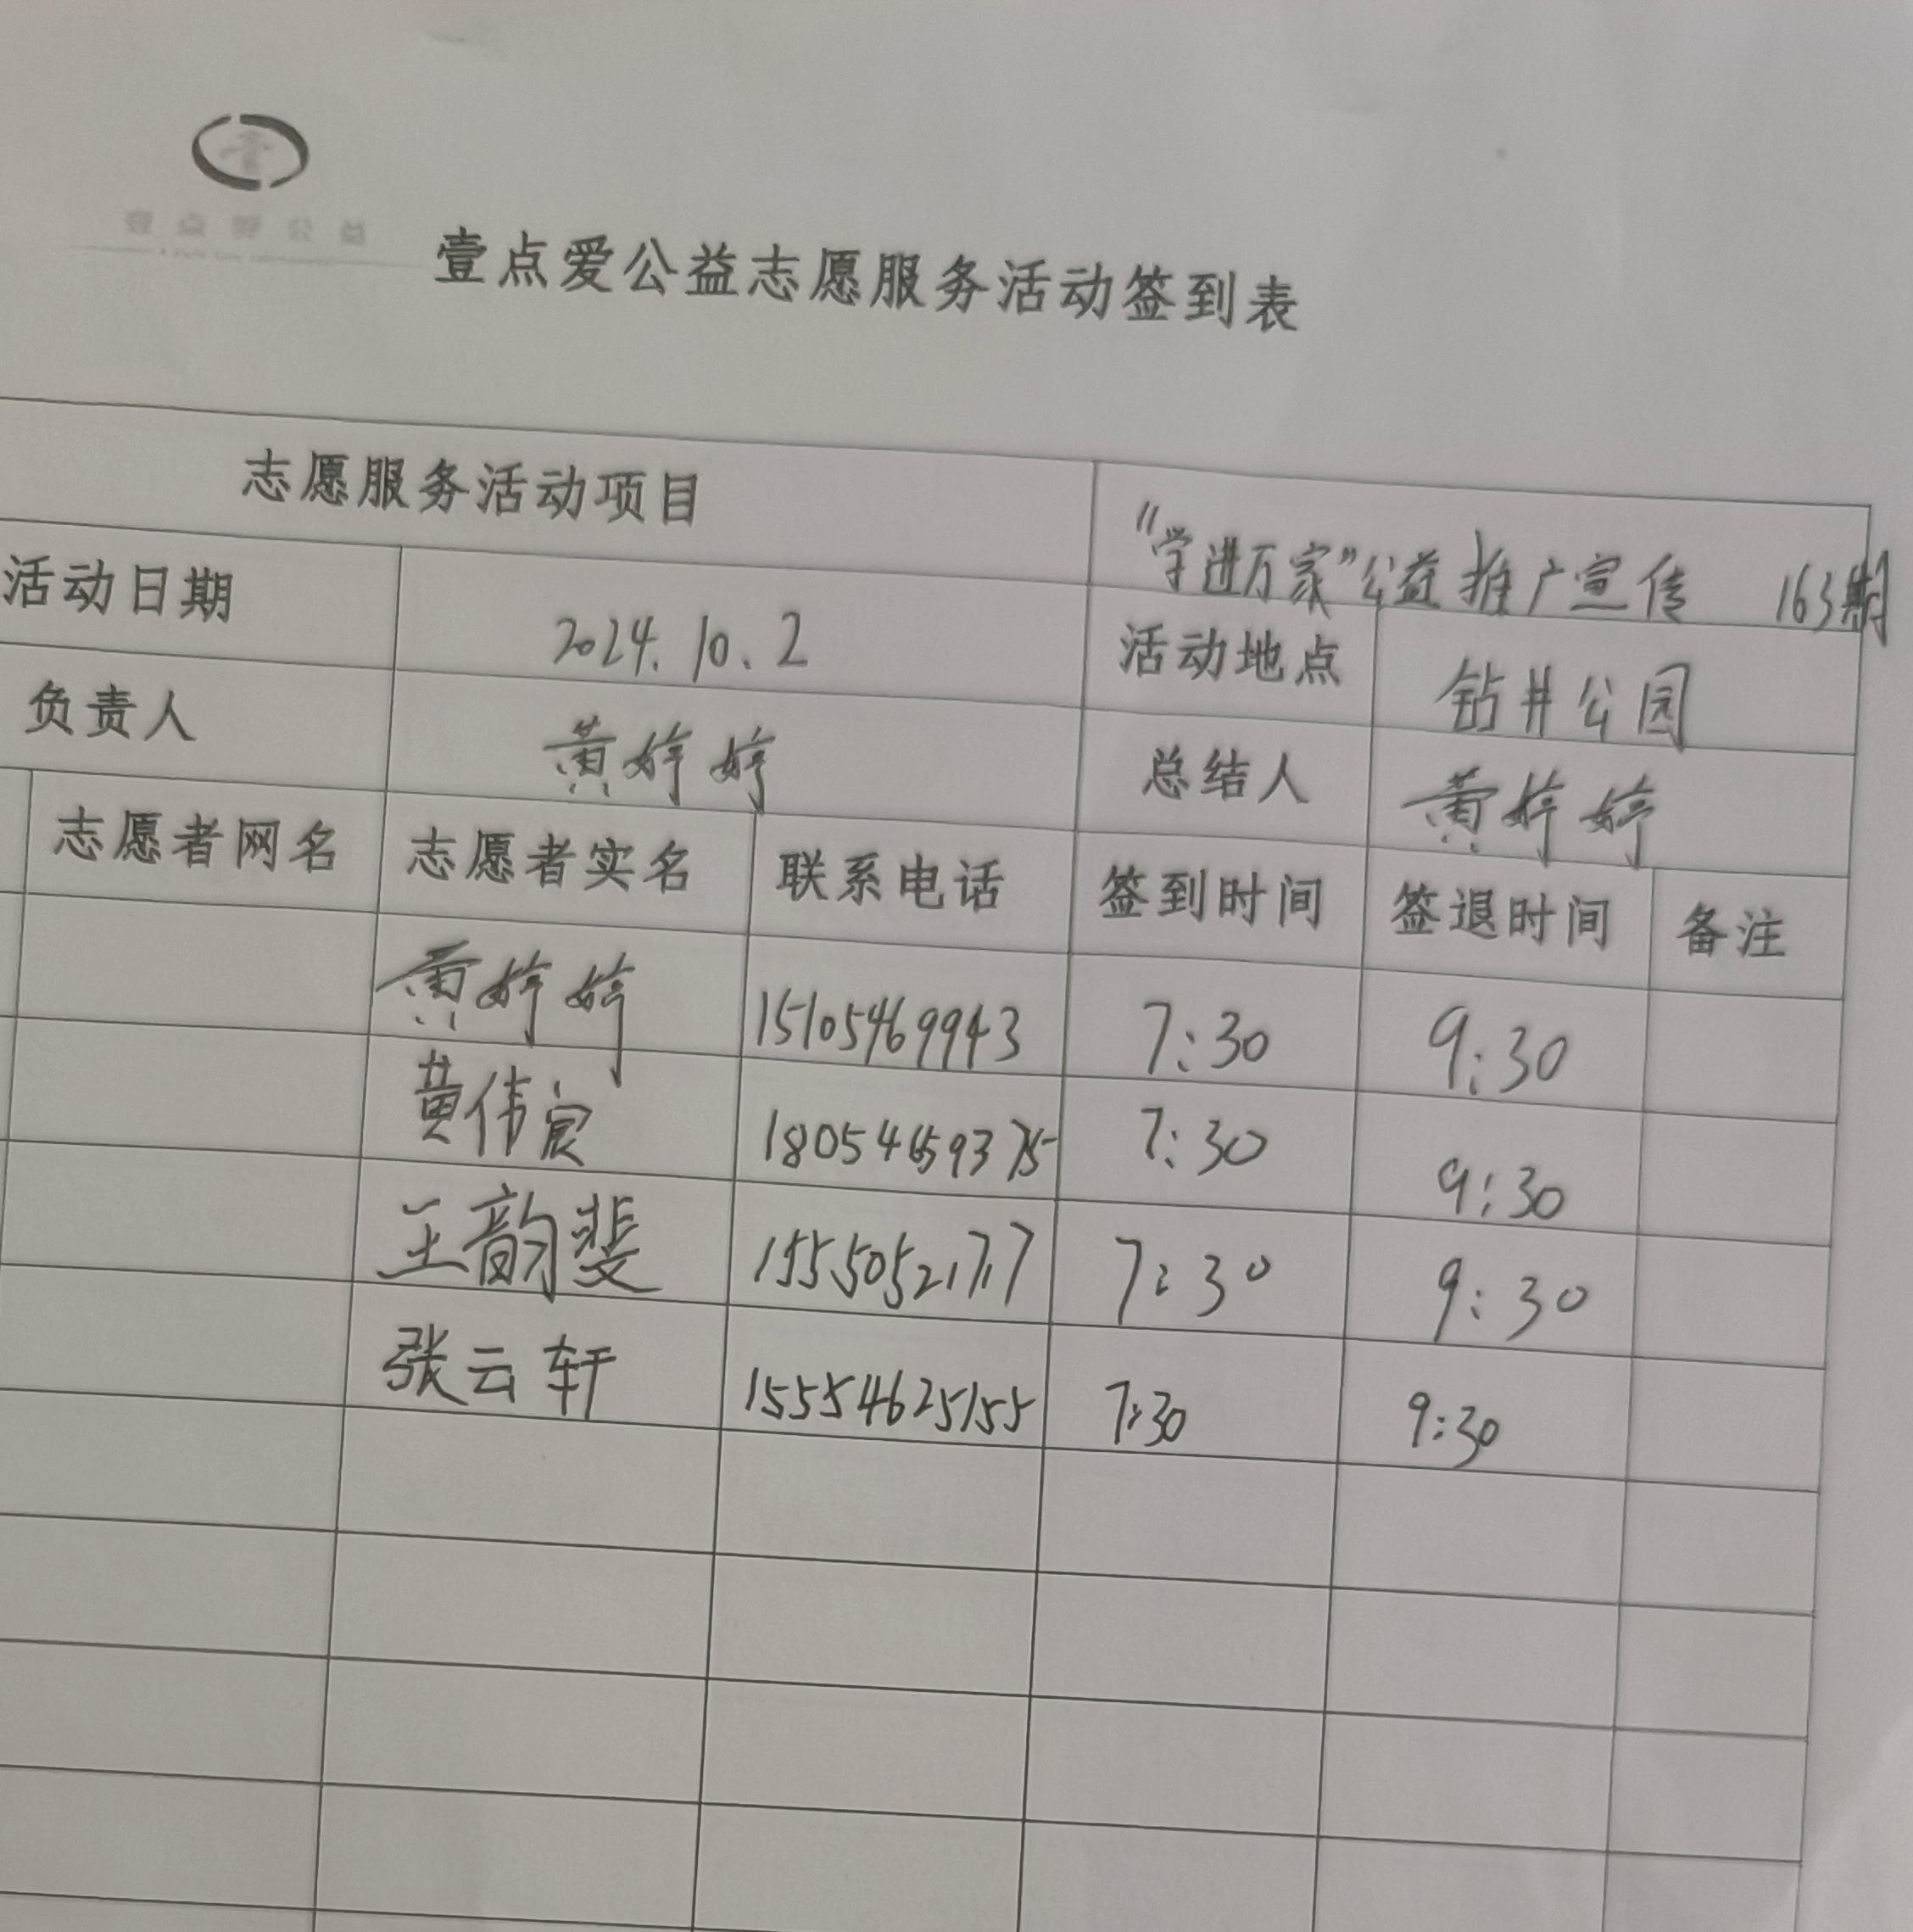 壹点爱公益
壹点爱公益志愿服务活动签到表
志愿服务活动项目 "学进万家"公益推广宣传 163期
活动日期 2024.10.2 活动地点 钻井公园
负责人 黄婷婷 总结人 黄婷婷
志愿者网名 志愿者实名 联系电话 签到时间 签退时间 备注
黄婷婷 15105469943 7:30 9:30
黄伟宸 18054659375 7:30 9:30
王韵斐 15550521717 7:30 9:30
张云轩 15554625155 7:30 9:30